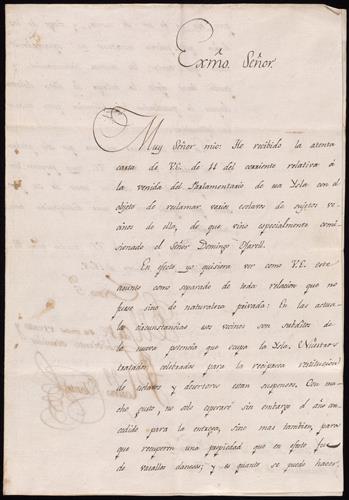 Exmo. Señor.
Muy Señor mio: He recibido la atenta
carta de V.E. de 11 del corriente relativa á
la venida del Parlamentario de esa Ysla con el
objeto de reclamar varios esclavos de sugetos ve-
cinos de ella, de que vino especialmente comi-
sionado el Señor Domingo
En efecto yo quisiera ver como V.E. este
asunto como separado de toda relacion que no
fuese sino de naturaleza privada: En las actua-
les circunstancias sus vecinos son subditos de
la nueva potencia que ocupa la Ysla. Nuestros
tratados celebrados para la reciproca restitucion
de esclavos y desertores estan suspensos. Con mu-
cho gusto, no solo esperaré sin embargo el año con-
cedido para la entrega, sino mas tambien, para
que recuperen una propiedad que en efecto fue
de vasallos daneses; y es quanto se puede hacer,